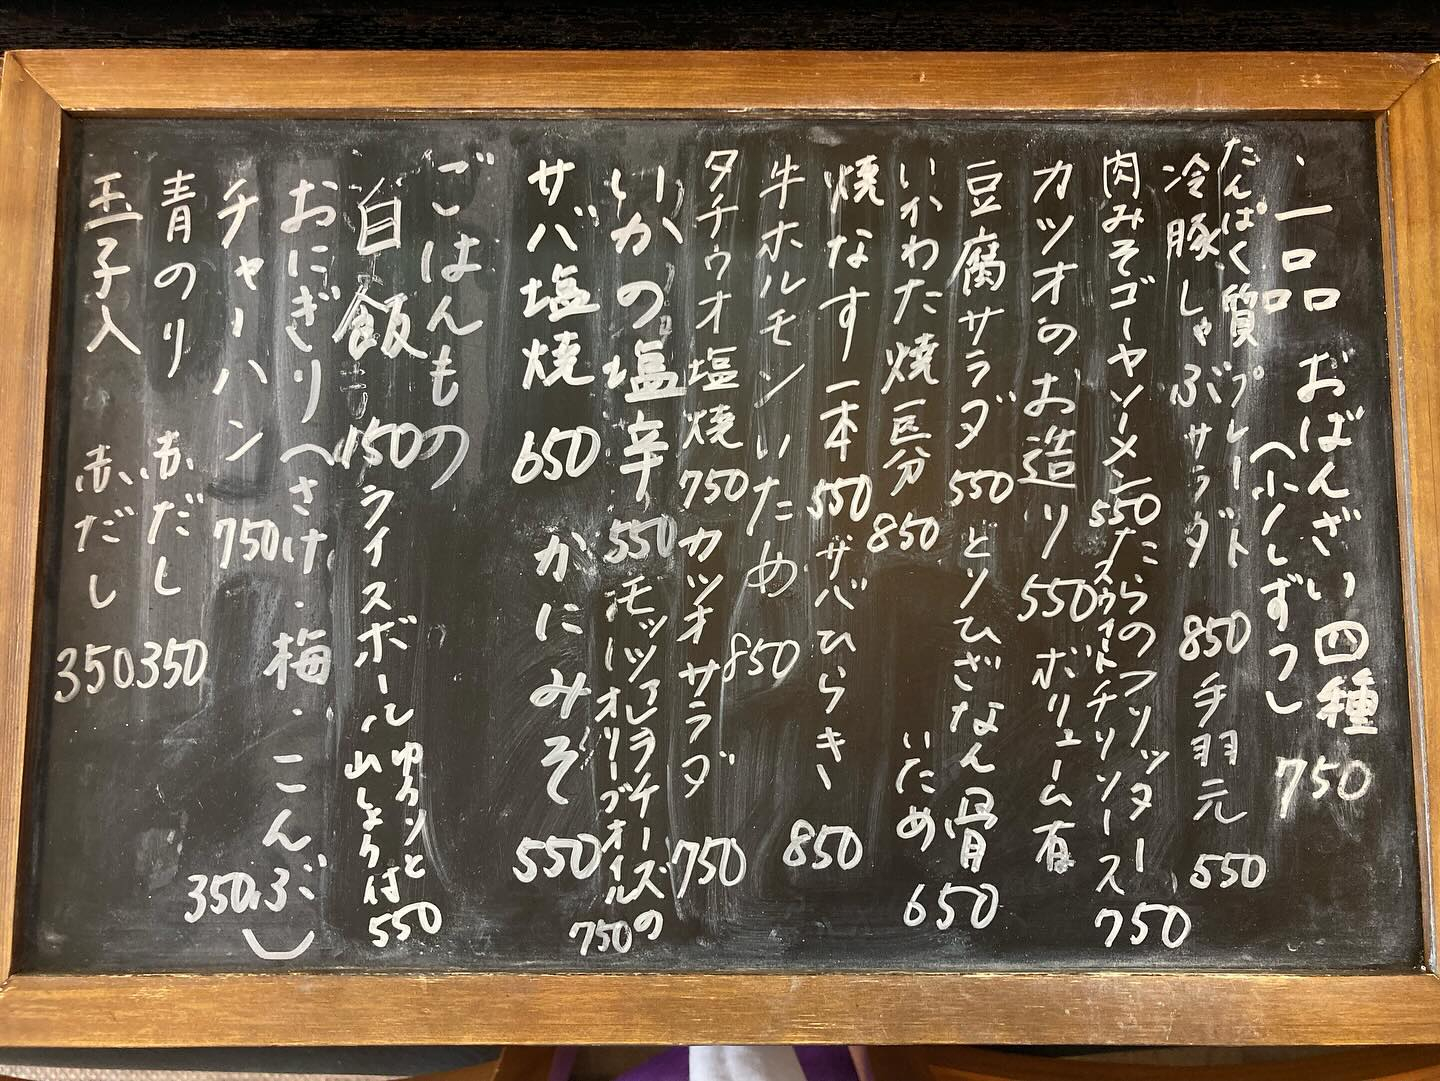 ・一品 おばんざい四種 750
(少しずつ)
たんぱく質プレート
冷豚しゃぶサラダ 850 手羽元 550
肉みそゴーヤソーメン 550 たらのフリッター
スウィートチリソース 750
カツオのお造り 550 ボリューム有
豆腐サラダ 550 とりひざなん骨
いため 650
いかわた焼 一匹分 850
焼なす 一本 550 サバひらき 850
牛ホルモンいため 850
タチウオ塩焼 750 カツオサラダ 750
いかの塩辛 550 モッツァレラチーズの
オリーブオイル 750
サバ塩焼 650 かにみそ 550
ごはんもの
白飯 150 ライスボール ゆかりと
山しょう付 550
おにぎり(さけ・梅・こんぶ) 350
チャーハン 750
青のり 赤だし 350
玉子入 赤だし 350